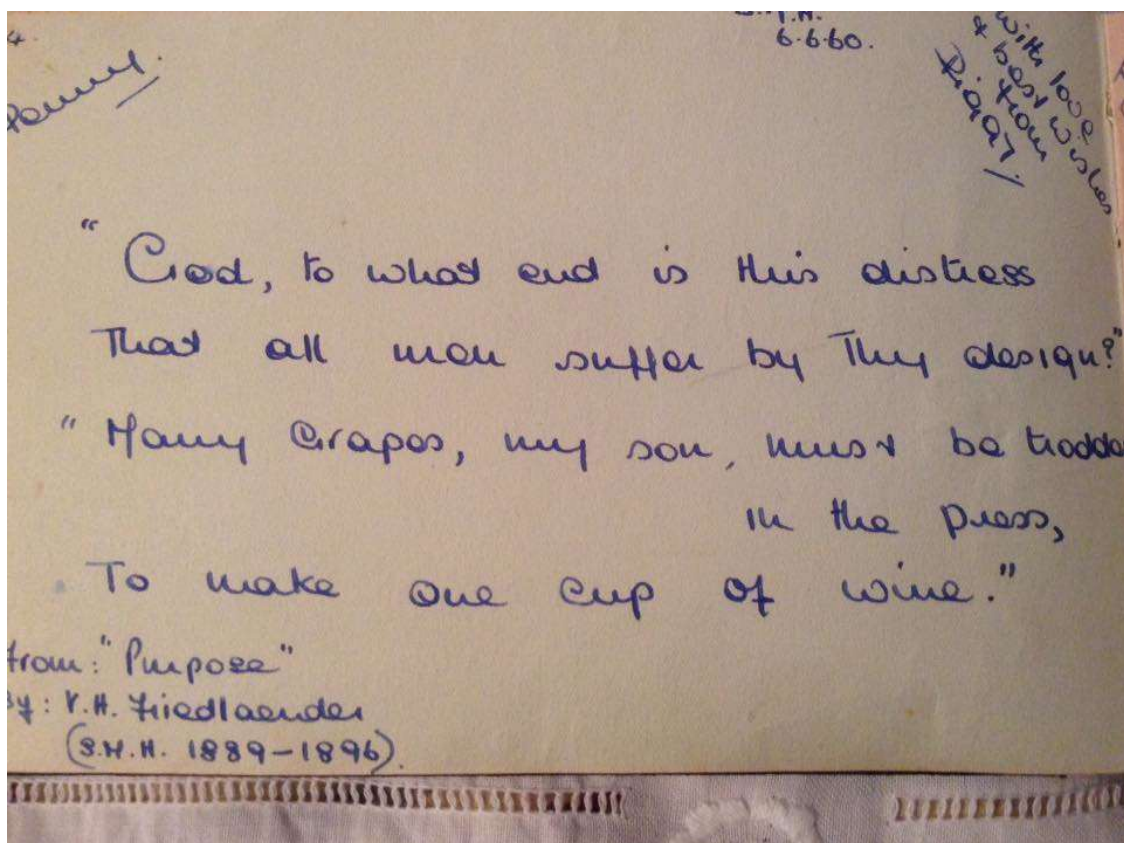 Penny.
6.6.60.
with love
& best wishes
from
"God, to what end is this distress
That all men suffer by Thy design?"
"Many Grapes, my son, must be trodde
in the press,
To make one cup of wine."
from: "Purpose"
By: V.H. Friedlaender
(S.H.H. 1889-1896).